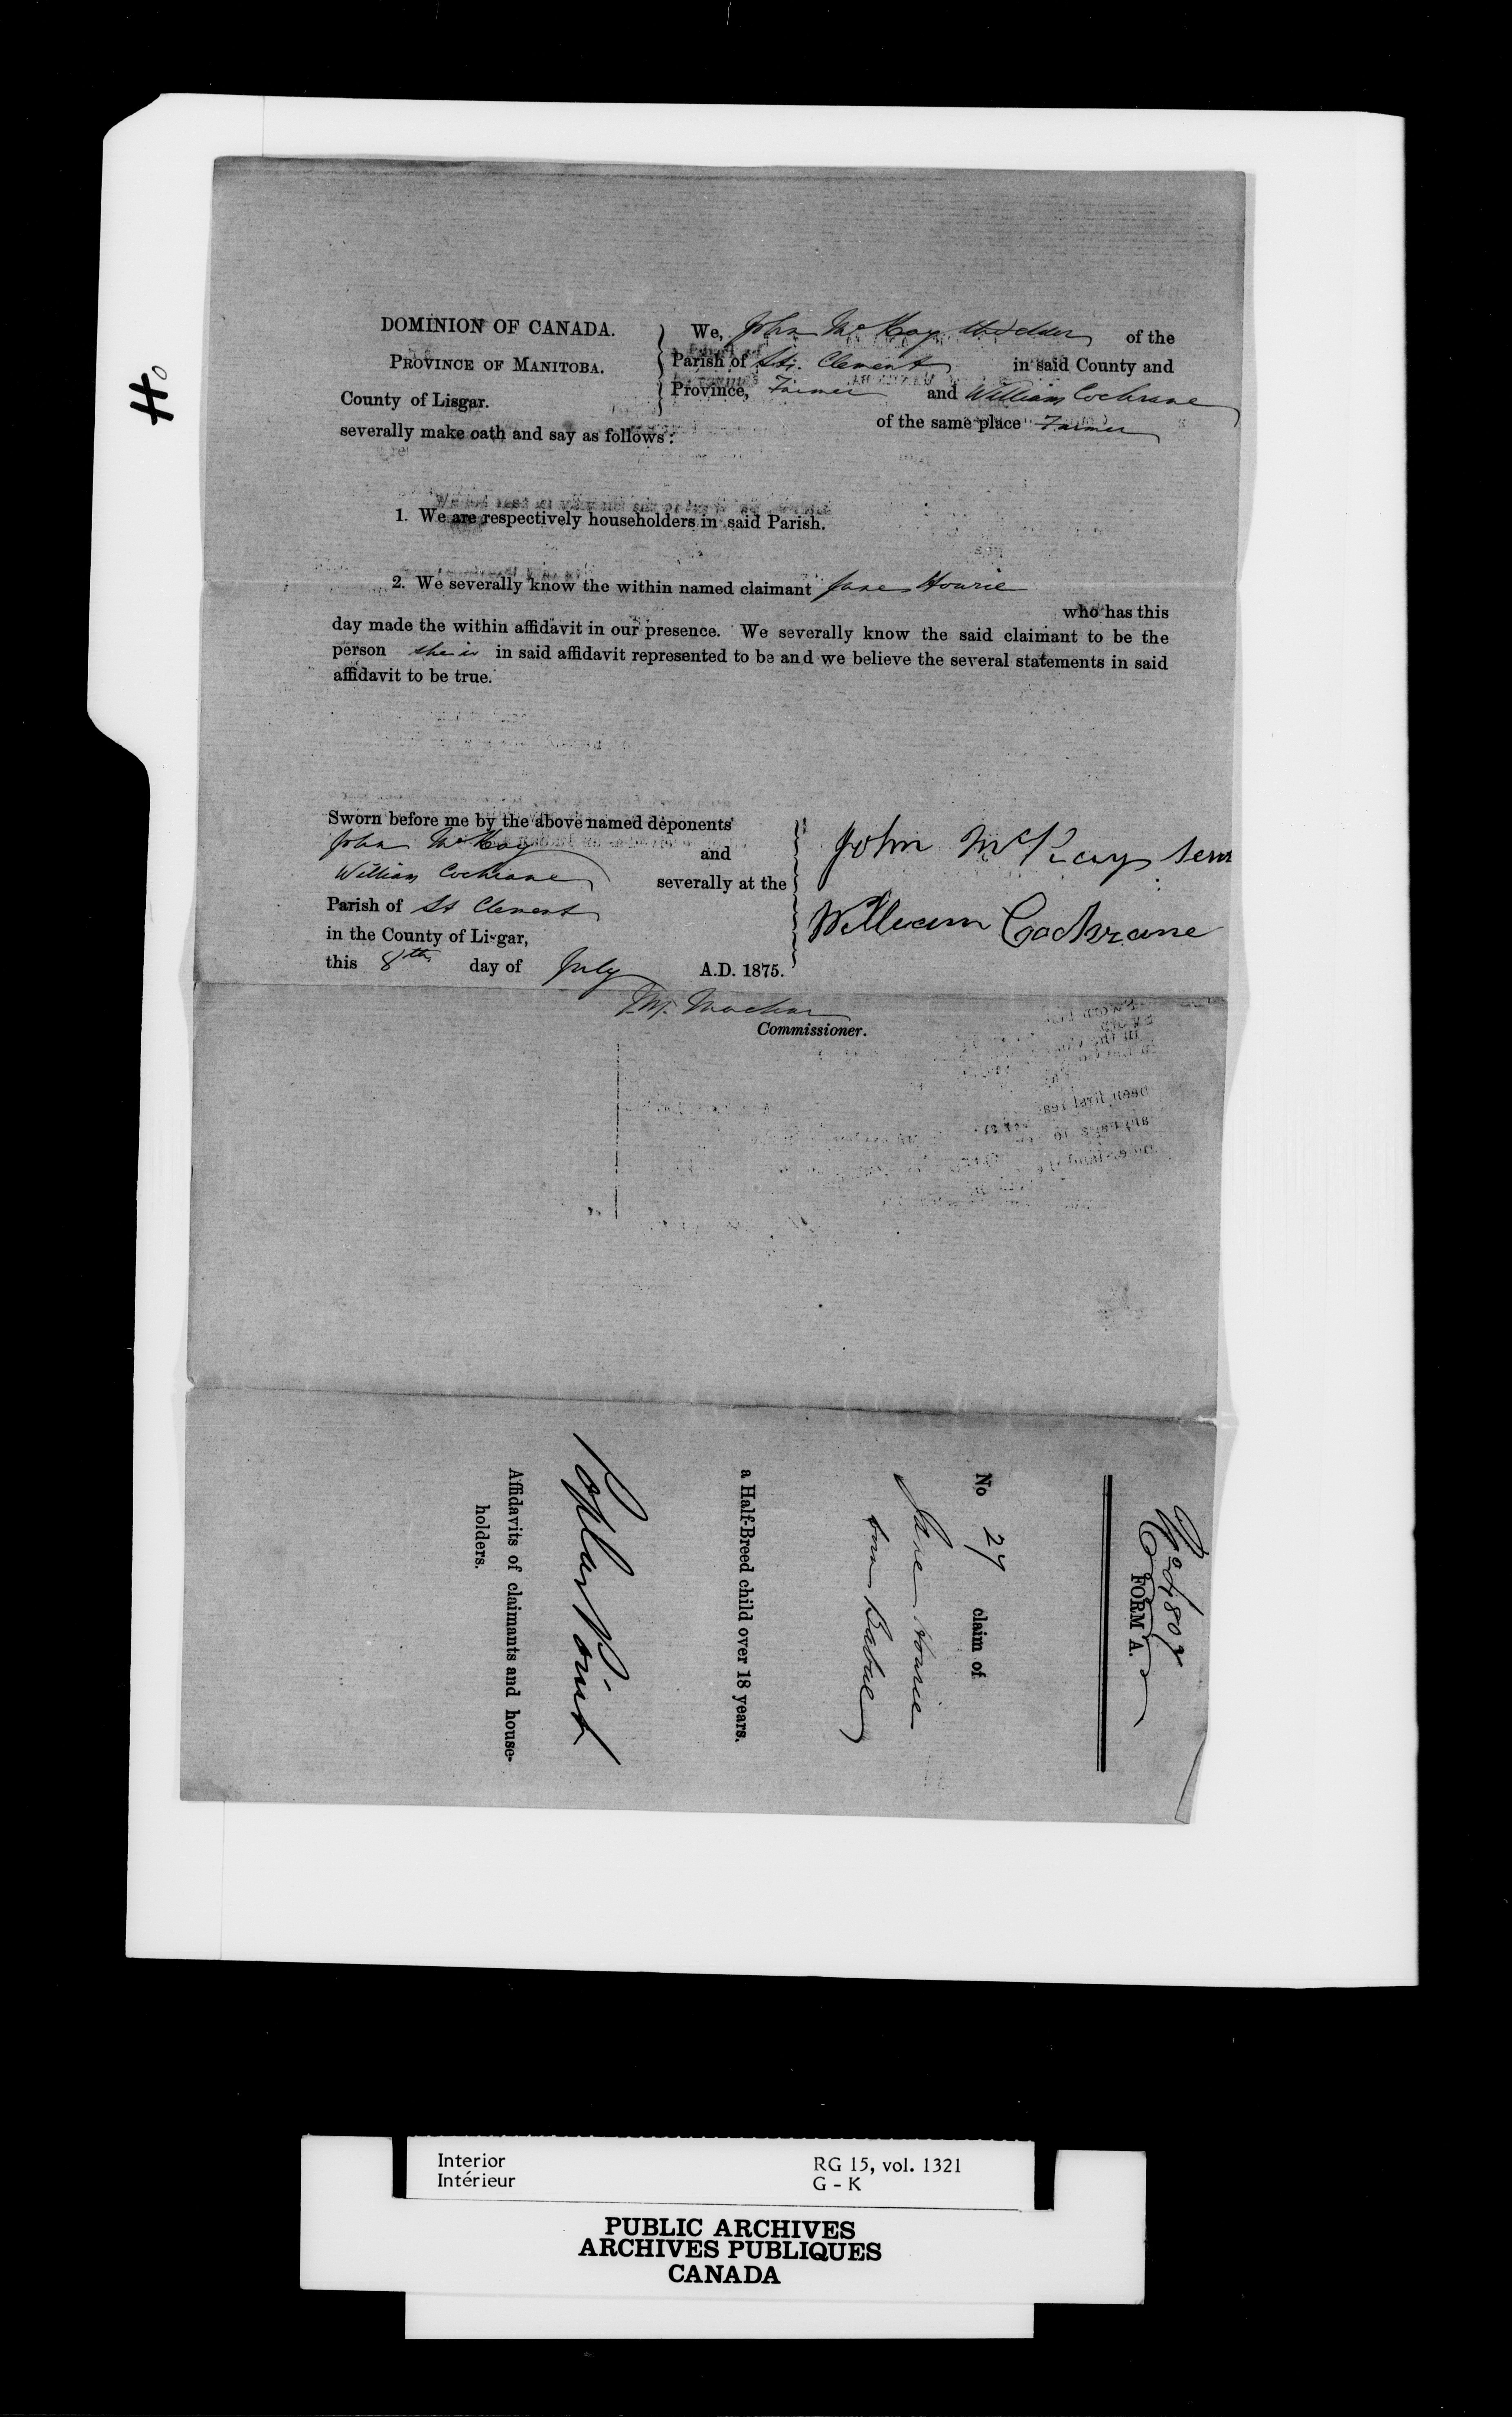 Ho
DOMINION OF CANADA.
PROVINCE OF MANITOBA.
County of Lisgar.
We, John McKay the elder of the
Parish of St. Clement in said County and
Province, Farmer and William Cochrane
of the same place Farmer
severally make oath and say as follows:
1. We are respectively householders in said Parish.
2. We severally know the within named claimant Jane Howrie
who has this
day made the within affidavit in our presence. We severally know the said claimant to be the
person she is in said affidavit represented to be and we believe the several statements in said
affidavit to be true.
Sworn before me by the above named deponents
John McKay and
William Cochrane severally at the
Parish of St Clement
in the County of Lisgar,
this 8th day of July A.D. 1875.
John McKay Senr
William Cochrane
Commissioner.
FORM A.
No 27 claim of
Jane Howrie
a Half-Breed child over 18 years.
Poplar Point
Affidavits of claimants and house-
holders.
Interior
Intérieur
RG 15, vol. 1321
G - K
PUBLIC ARCHIVES
ARCHIVES PUBLIQUES
CANADA